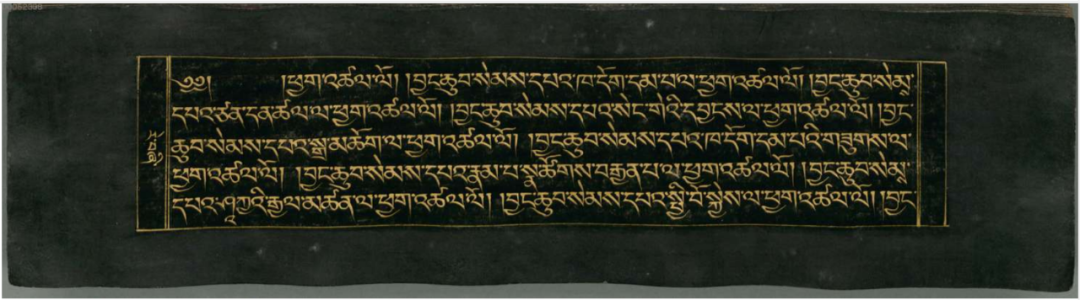 ༄༅། །ཕྱག་འཚལ་ལོ། །བྱང་ཆུབ་སེམས་དཔའ་ཁ་དོག་དམ་པ་ལ་ཕྱག་འཚལ་ལོ། །བྱང་ཆུབ་སེམས་
དཔའ་ཙན་དན་ཚལ་ལ་ཕྱག་འཚལ་ལོ། །བྱང་ཆུབ་སེམས་དཔའ་སེང་གེའི་དབྱངས་ལ་ཕྱག་འཚལ་ལོ། །བྱང་
ཆུབ་སེམས་དཔའ་སྒྲ་མཆོག་ལ་ཕྱག་འཚལ་ལོ། །བྱང་ཆུབ་སེམས་དཔའ་ཁ་དོག་དམ་པའི་གཟུགས་ལ་
ཕྱག་འཚལ་ལོ། །བྱང་ཆུབ་སེམས་དཔའ་རྣམ་པ་སྣ་ཚོགས་བརྒྱན་པ་ལ་ཕྱག་འཚལ་ལོ། །བྱང་ཆུབ་སེམས་
དཔའ་ཤཱཀྱའི་རྒྱལ་མཚན་ལ་ཕྱག་འཚལ་ལོ། །བྱང་ཆུབ་སེམས་དཔའ་སྤྱི་བོ་སྐྱེས་ལ་ཕྱག་འཚལ་ལོ། །བྱང་